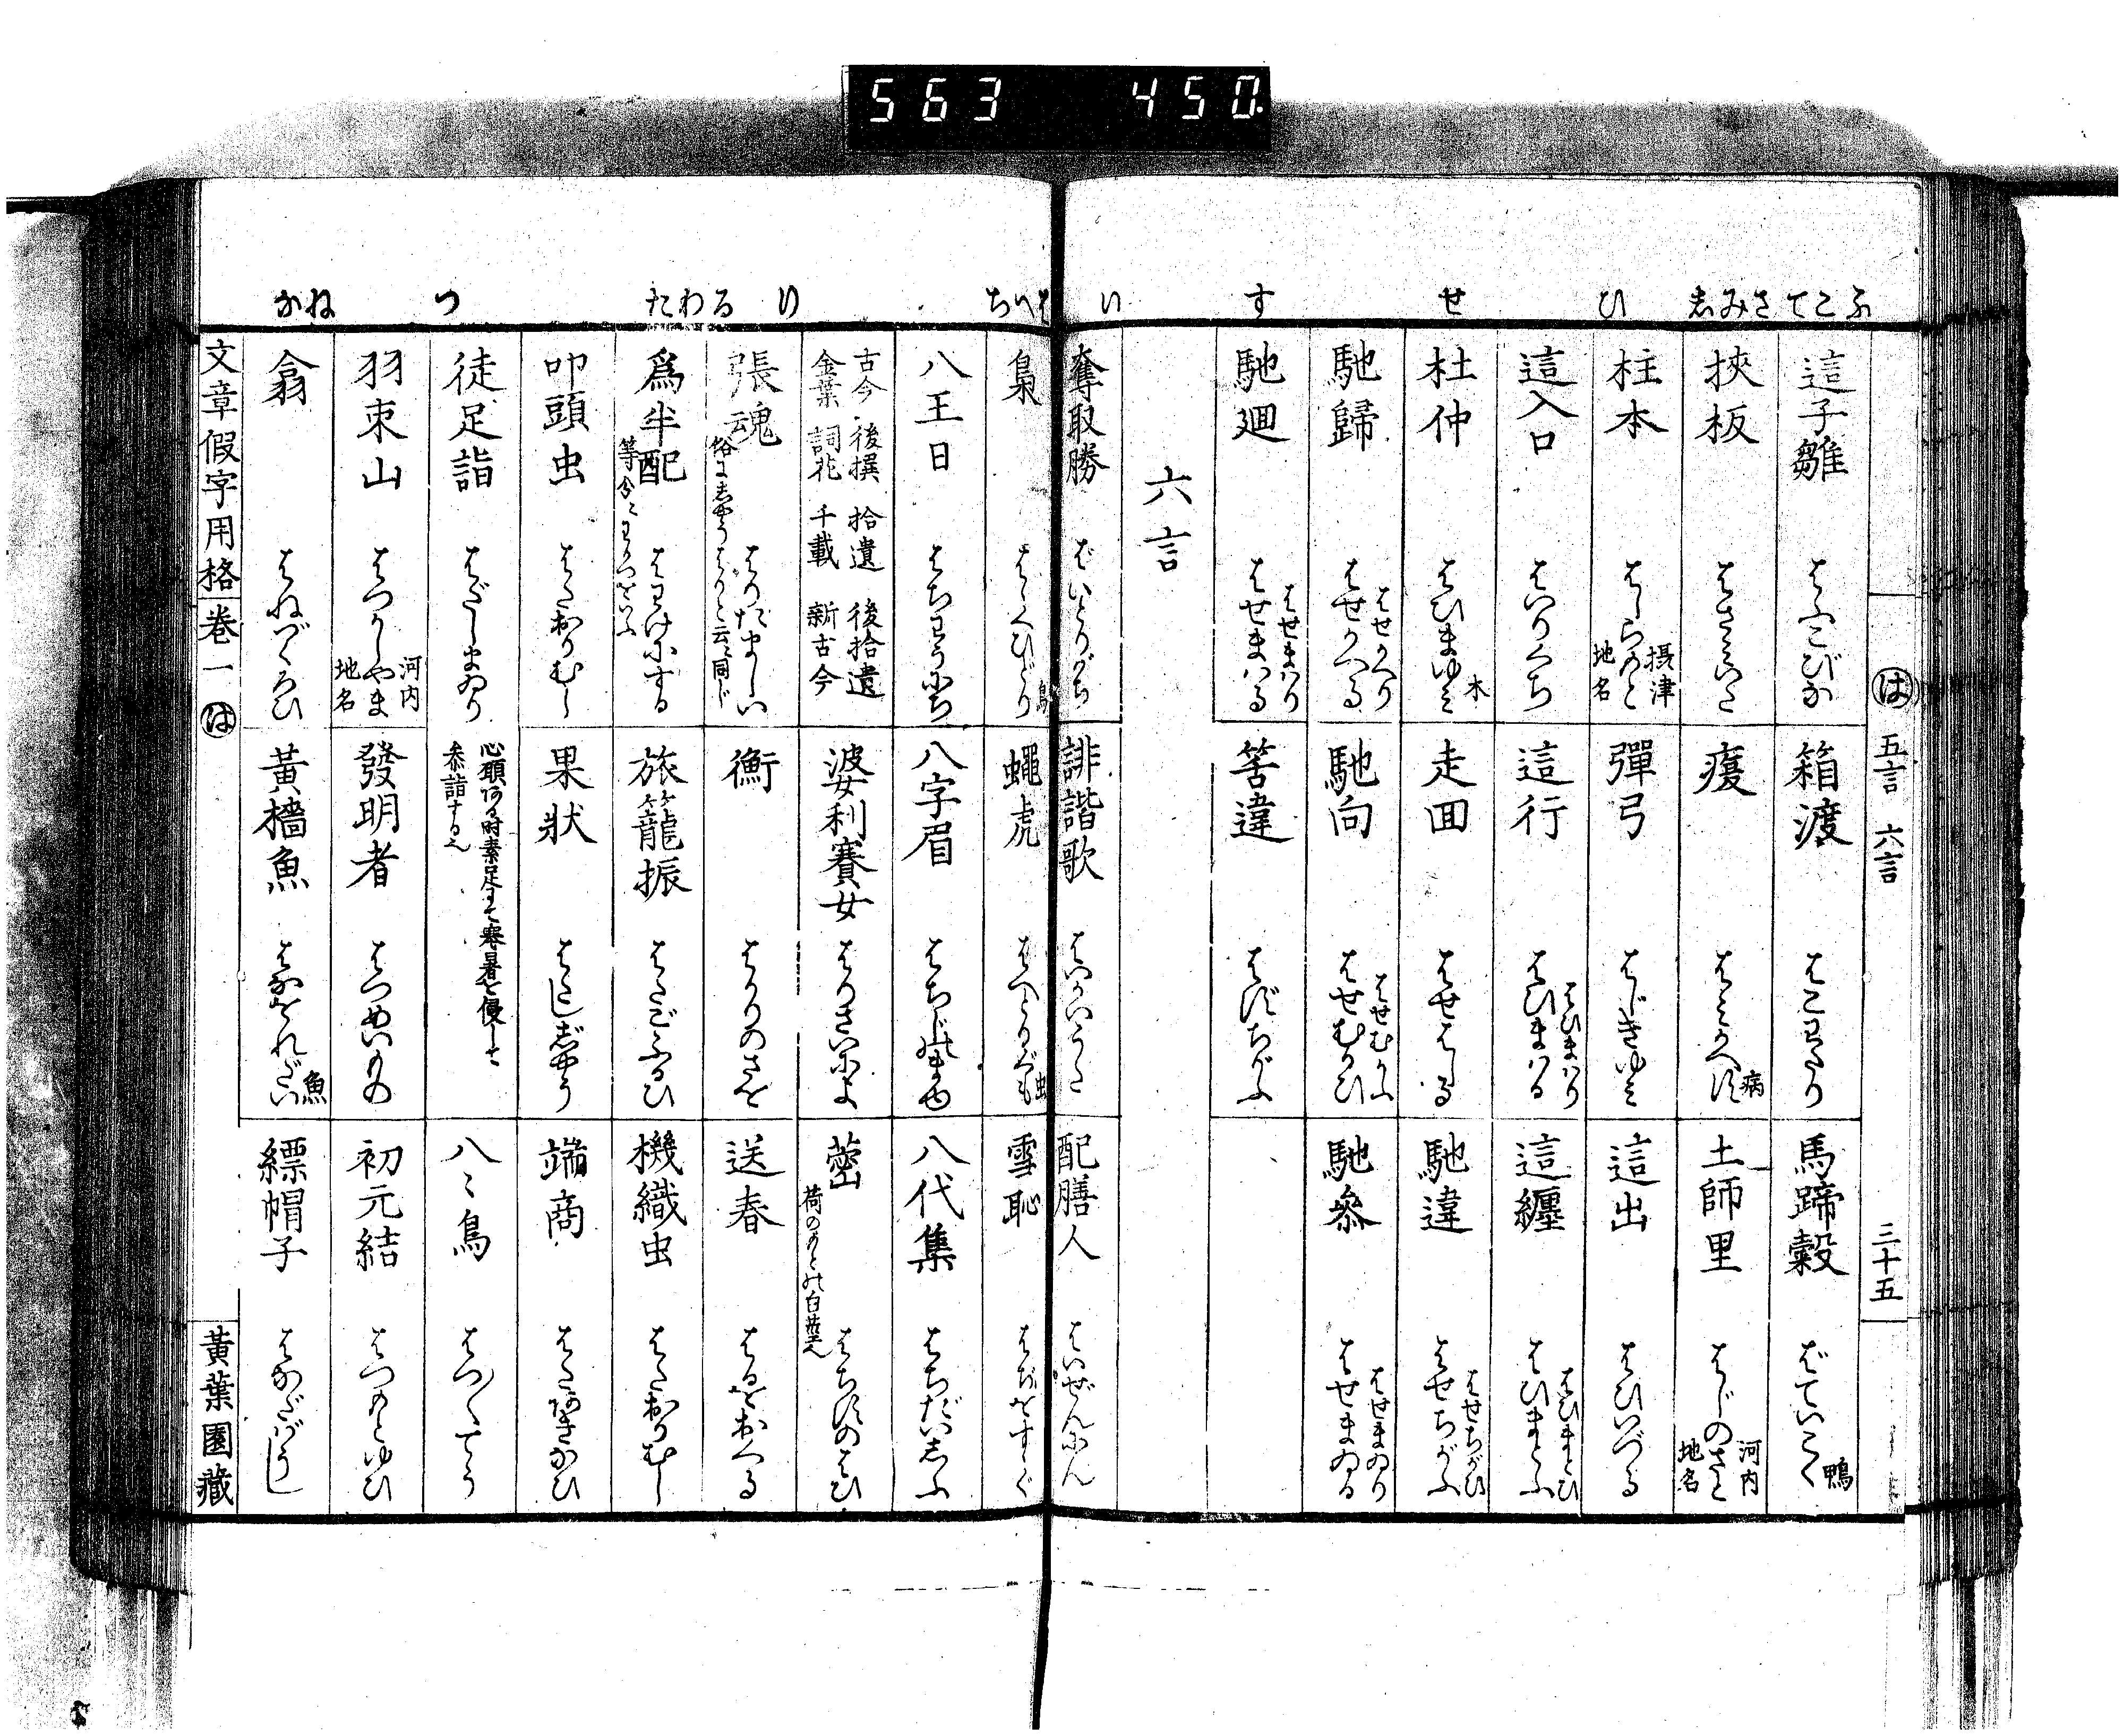 563 450
ふこてさみし ひ せ す い
は 五言 六言 三十五
這子雛 はふこびな
箱渡 はこわたり
馬蹄㲉 ばていこく 鴨
挾板 はさみいた
土師里 はじのさと 河内地名
柱本 はしらもと 摂津地名
彈弓 はじきゆみ
這出 はひいづる
這入口 はいりくち
這行 はひまはり はひまはる
這纏 はひまとひ はひまとふ
杜仲 はひまゆみ 木
走囬 はせはる
馳違 はせちがひ はせちがふ
馳歸 はせかへり はせかへる
馳向 はせむかふ はせむかひ
馳參 はせまゐり はせまゐる
馳廻 はせまはり はせまはる
筈違 はずちがふ
六言
奪取勝 ばいとりがち
誹諧歌 はいかいうた
配膳人 はいぜんにん
はへち り るわた つ ねな
梟 はゝくひどり 鳥
蠅虎 はへとりぐも 虫
雪恥 はぢをすゝぐ
八王日 はちわうにち
八字眉 はちじのまゆ
八代集 はちだいしふ
古今 後撰 拾遺 後拾遺
金葉 詞花 千載 新古今
婆利賽女 はりさいによ
荷のもとの白莖也 はちすのはひ
張魂 はりだましい
俗にしやうはりと云同じ
衡 はかりのさを
送春 はるをおくる
爲半配 はわけにする
旅籠振 はたごふるひ
機織虫 はたおりむし
叩頭虫 はたおりむし
果狀 はたしじやう
端商 はたあきなひ
徒足詣 はだしまゐり
心願ある時素足にて寒暑を侵して
參詣する也
八〻鳥 はつ〳〵てう
羽束山 はつかしやま 河内地名
發明者 はつめいもの
初元結 はつもとゆひ
翕 はねづくろひ
黃檣魚 はなをれだい 魚
縹帽子 はなだばうし
文章假字用格 卷一 は 黃葉園藏